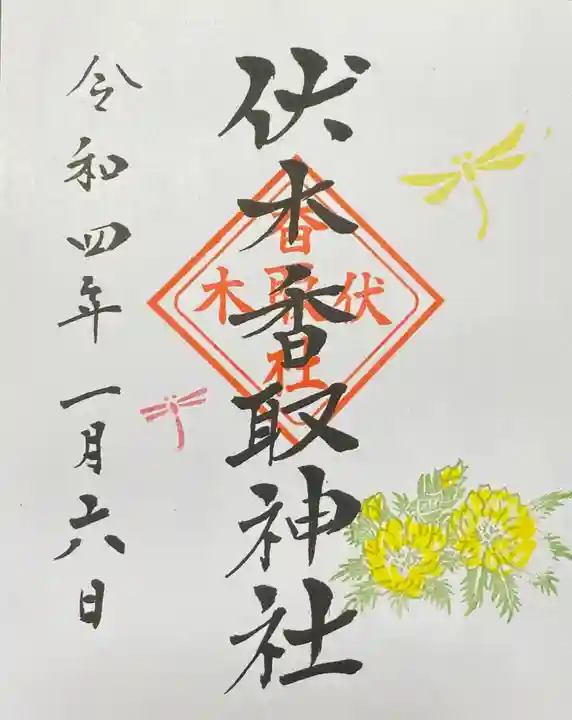 伏木香取神社
香
伏取木
社
令和四年一月六日